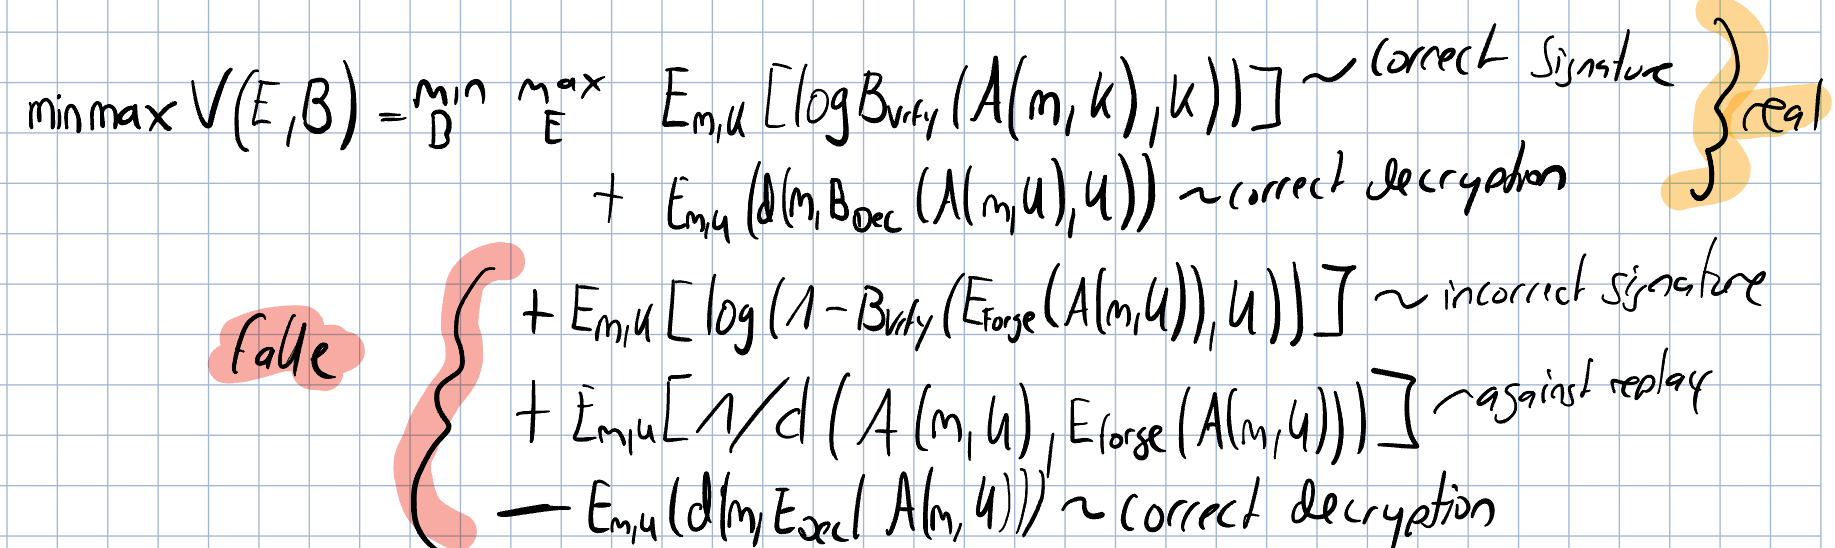 min max V(E,B) = min_B max_E E_{m,k} [log B_{vrfy} (A(m,k),k))] ~ correct signature } real
+ E_{m,k} (d(m, B_{Dec} (A(m,k),k)) ~ correct decryption
+ E_{m,k} [log (1 - B_{vrfy} (E_{Forge} (A(m,k)),k))] ~ incorrect signature
false { + E_{m,k} [1/d (A(m,k), E_{forge} (A(m,k)))] ~ against replay
- E_{m,k} (d(m, E_{Dec} (A(m,k))) ~ correct decryption